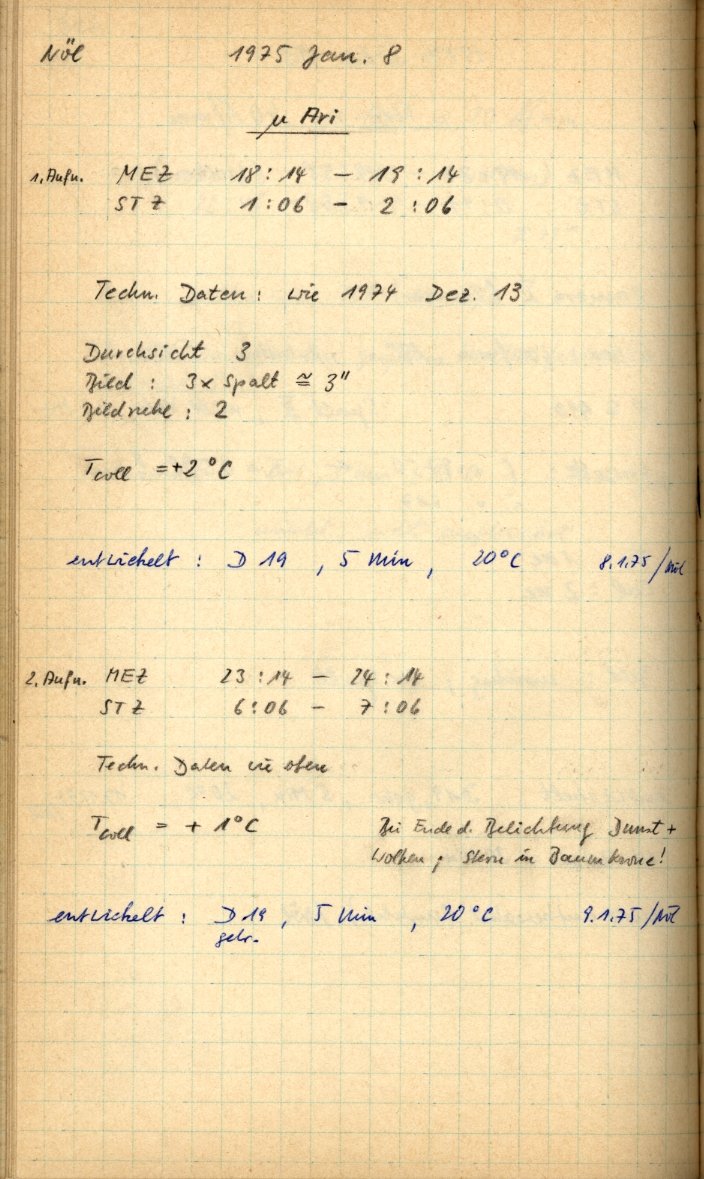 Nöl 1975 Jan. 8
μ Ari
1. Aufn. MEZ 18:14 – 19:14
STZ 1:06 – 2:06
Techn. Daten: wie 1974 Dez. 13
Durchsicht 3
Bild: 3x Spalt ≅ 3"
Bildruhe: 2
T coll = +2°C
entwickelt: D 19, 5 Min, 20°C 8.1.75/Nöl
2. Aufn. MEZ 23:14 – 24:14
STZ 6:06 – 7:06
Techn. Daten wie oben
T coll = + 1°C
Bei Ende d. Belichtung Dunst +
Wolken; Stern in Baumkrone!
entwickelt: D 19, 5 Min, 20°C 9.1.75/Nöl
gebr.